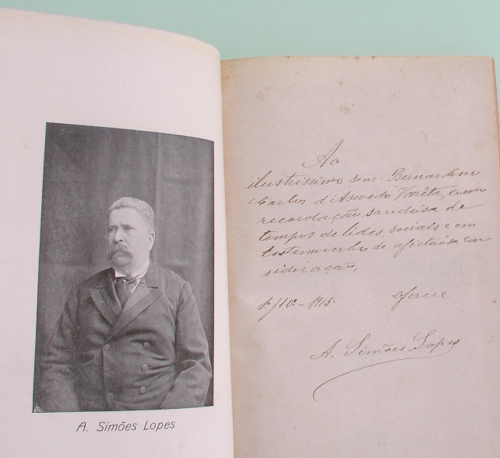 A. Simões Lopes
Ao
ilustrissimo snr. Bernardino
Carlos d'Azevedo Varéta, como
recordação saudosa de
tempos de lides sociais e em
testemunho de afectuosa con
sideração,
1º/10º-1915. oferece
A. Simões Lopes